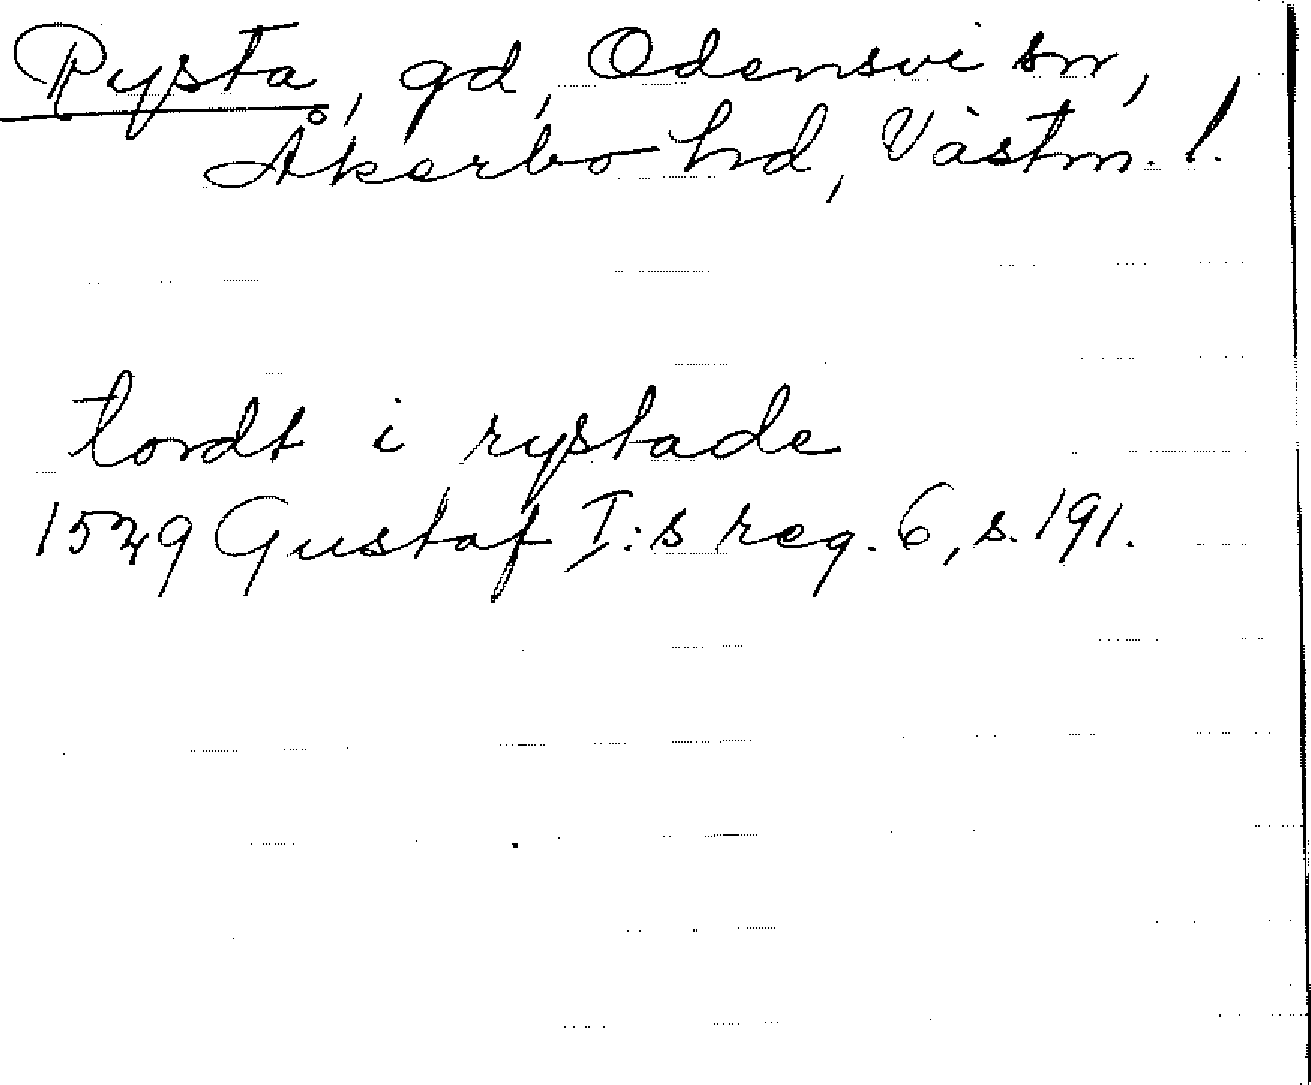 Rysta, gd, Odensvi sn,
Åkerbo hd, Västm. l.
tordt i rystade
1529 Gustaf I:s reg. 6, s. 191.